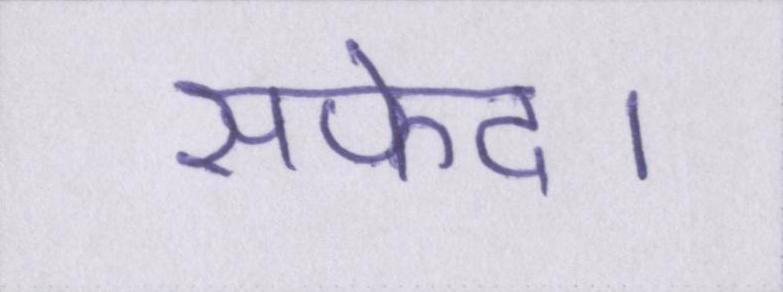 सफेद।